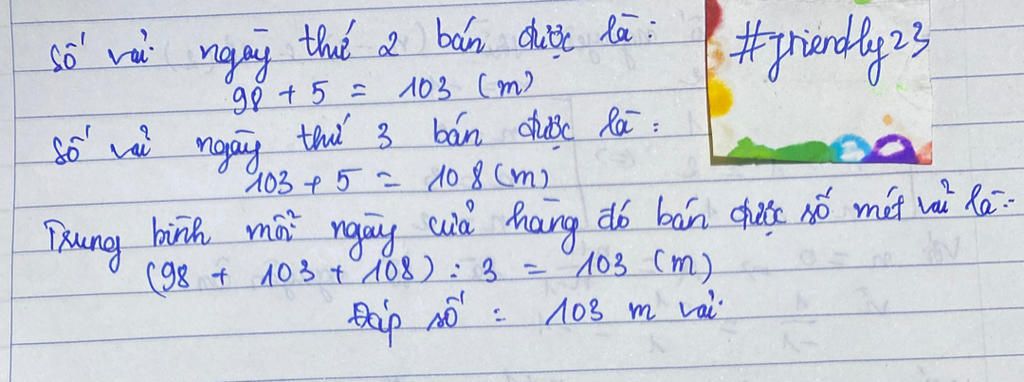 Số vải ngày thứ 2 bán được là:
98 + 5 = 103 (m)
Số vải ngày thứ 3 bán được là:
103 + 5 = 108 (m)
Trung bình mỗi ngày cửa hàng đó bán được số mét vải là:
(98 + 103 + 108) : 3 = 103 (m)
Đáp số : 103 m vải.
#friendly23